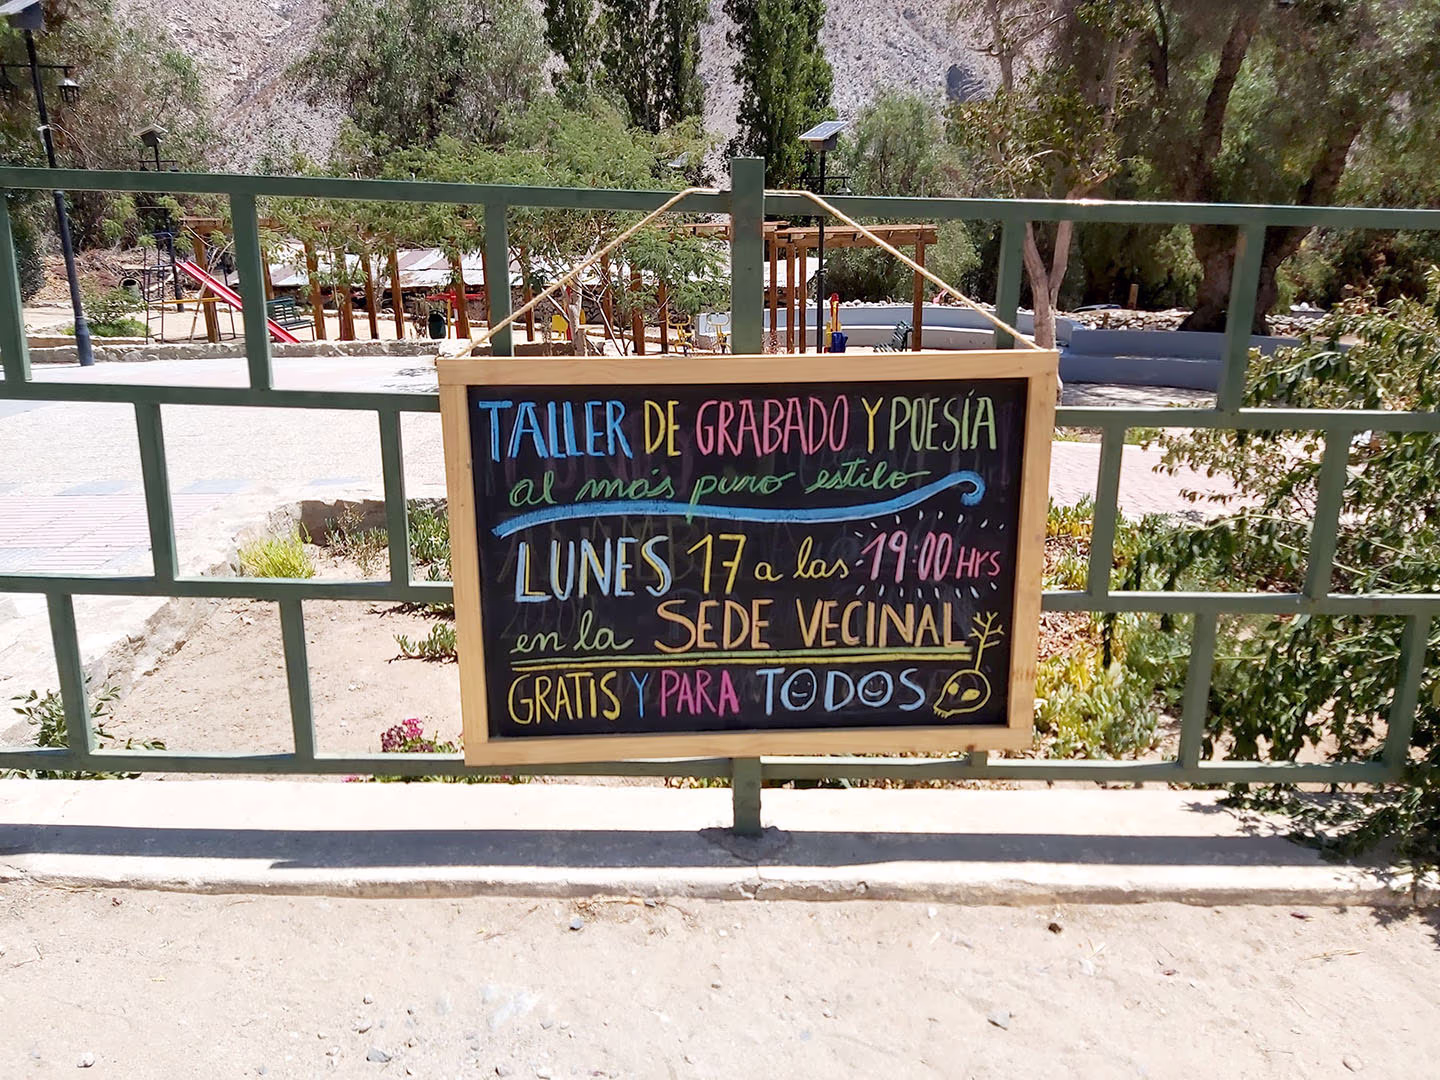 TALLER DE GRABADO Y POESÍA
al más puro estilo
LUNES 17 a las 19:00 Hrs
en la SEDE VECINAL
GRATIS Y PARA TODOS